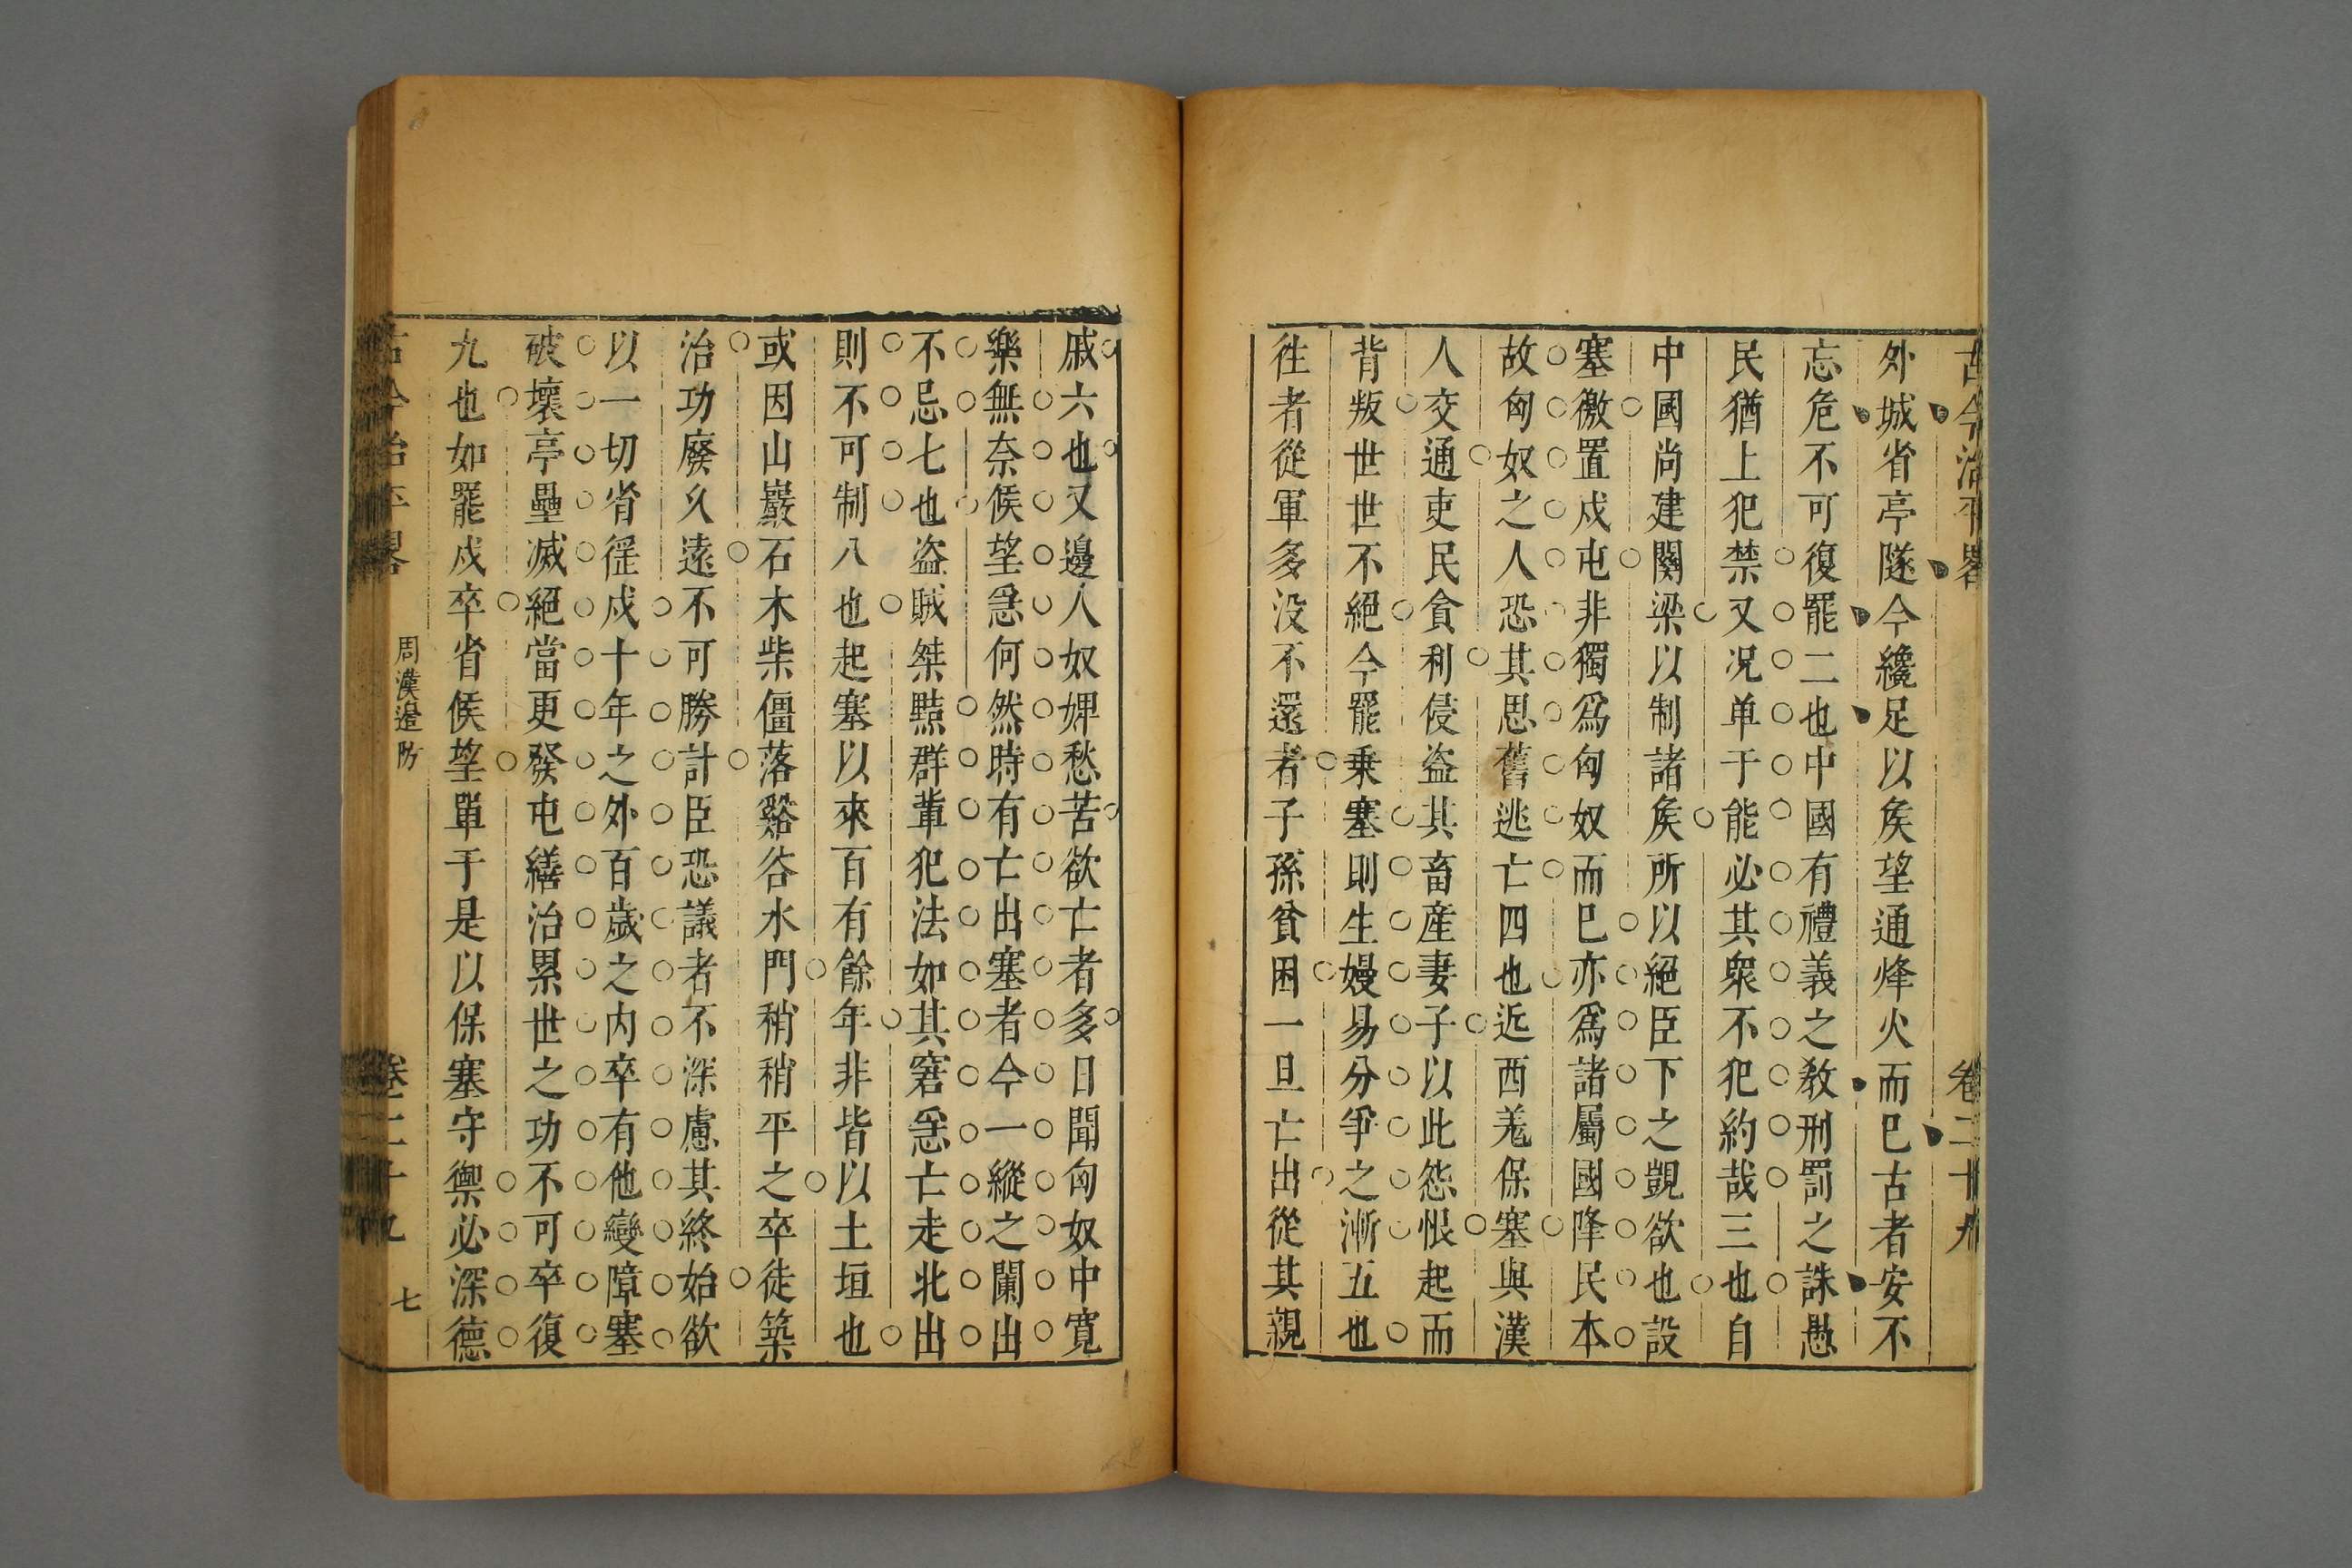 古今治平畧 卷二十九
外城省亭隧今纔足以矦望通烽火而巳古者安不
忘危不可復罷二也中國有禮義之敎刑罰之誅愚
民猶上犯禁又况单于能必其衆不犯約哉三也自
中國尚建關梁以制諸矦所以絕臣下之覬欲也設
塞徼置戍屯非獨爲匈奴而巳亦爲諸屬國降民本
故匈奴之人恐其思舊逃亡四也近西羗保塞與漢
人交通吏民貪利侵盜其畜産妻子以此怨恨起而
背叛世世不絕今罷乗塞則生嫚易分爭之漸五也
徃者從軍多没不還者子孫貧困一旦亡出從其親
戚六也又邊人奴婢愁苦欲亡者多日聞匈奴中寛
樂無奈候望急何然時有亡出塞者今一縱之闌出
不忌七也盜賊桀黠群輩犯法如其窘急亡走北出
則不可制八也起塞以來百有餘年非皆以土垣也
或因山巖石木柴僵落谿谷水門稍稍平之卒徒築
治功廢久遠不可勝計臣恐議者不深慮其終始欲
以一切省徭戍十年之外百歲之内卒有他變障塞
破壞亭壘滅絕當更發屯繕治累世之功不可卒復
九也如罷戍卒省候望單于是以保塞守禦必深德
古今治平畧 周漢邉防 卷二十九 七